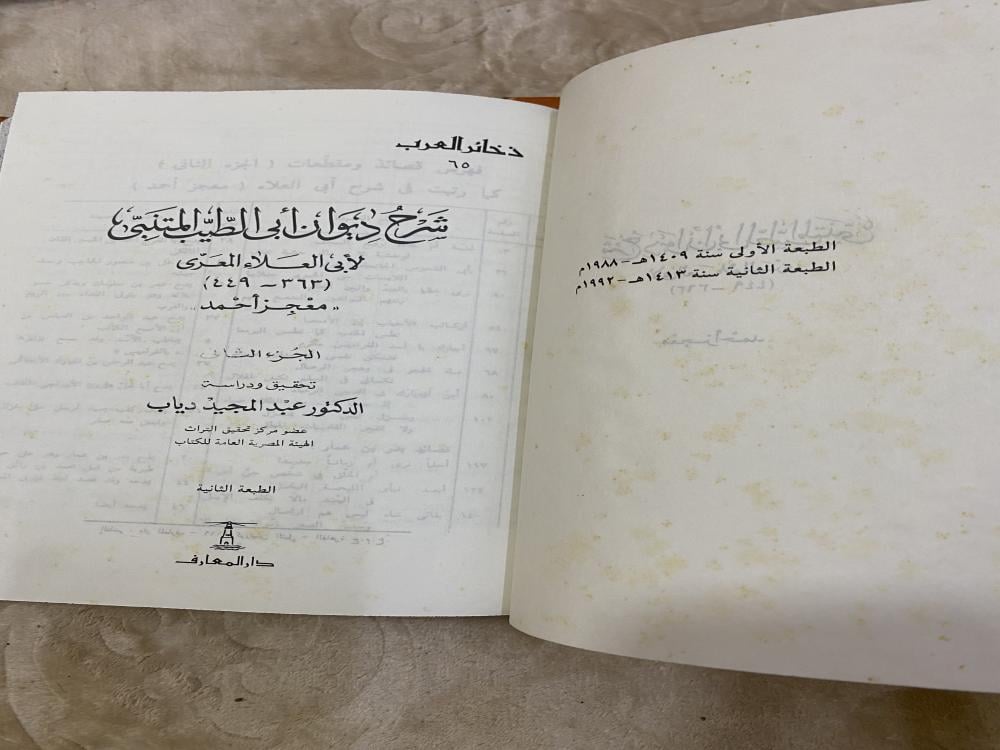 ذخائر العرب
٦٥
شَرْحُ دِيوَان أبى الطّيّب المتنبّى
لأبى العلاء المعرّى
(٣٦٣ - ٤٤٩)
„ معْجِز أحْمد „
الجُزء الثانى
تحقيق ودراسة
الدكتور عبد المجيد دياب
عضو مركز تحقيق التراث
الهيئة المصرية العامة للكتاب
الطبعة الثانية
دار المعارف
الطبعة الأولى سنة ١٤٠٩هـ - ١٩٨٨م
الطبعة الثانية سنة ١٤١٣هـ - ١٩٩٢م